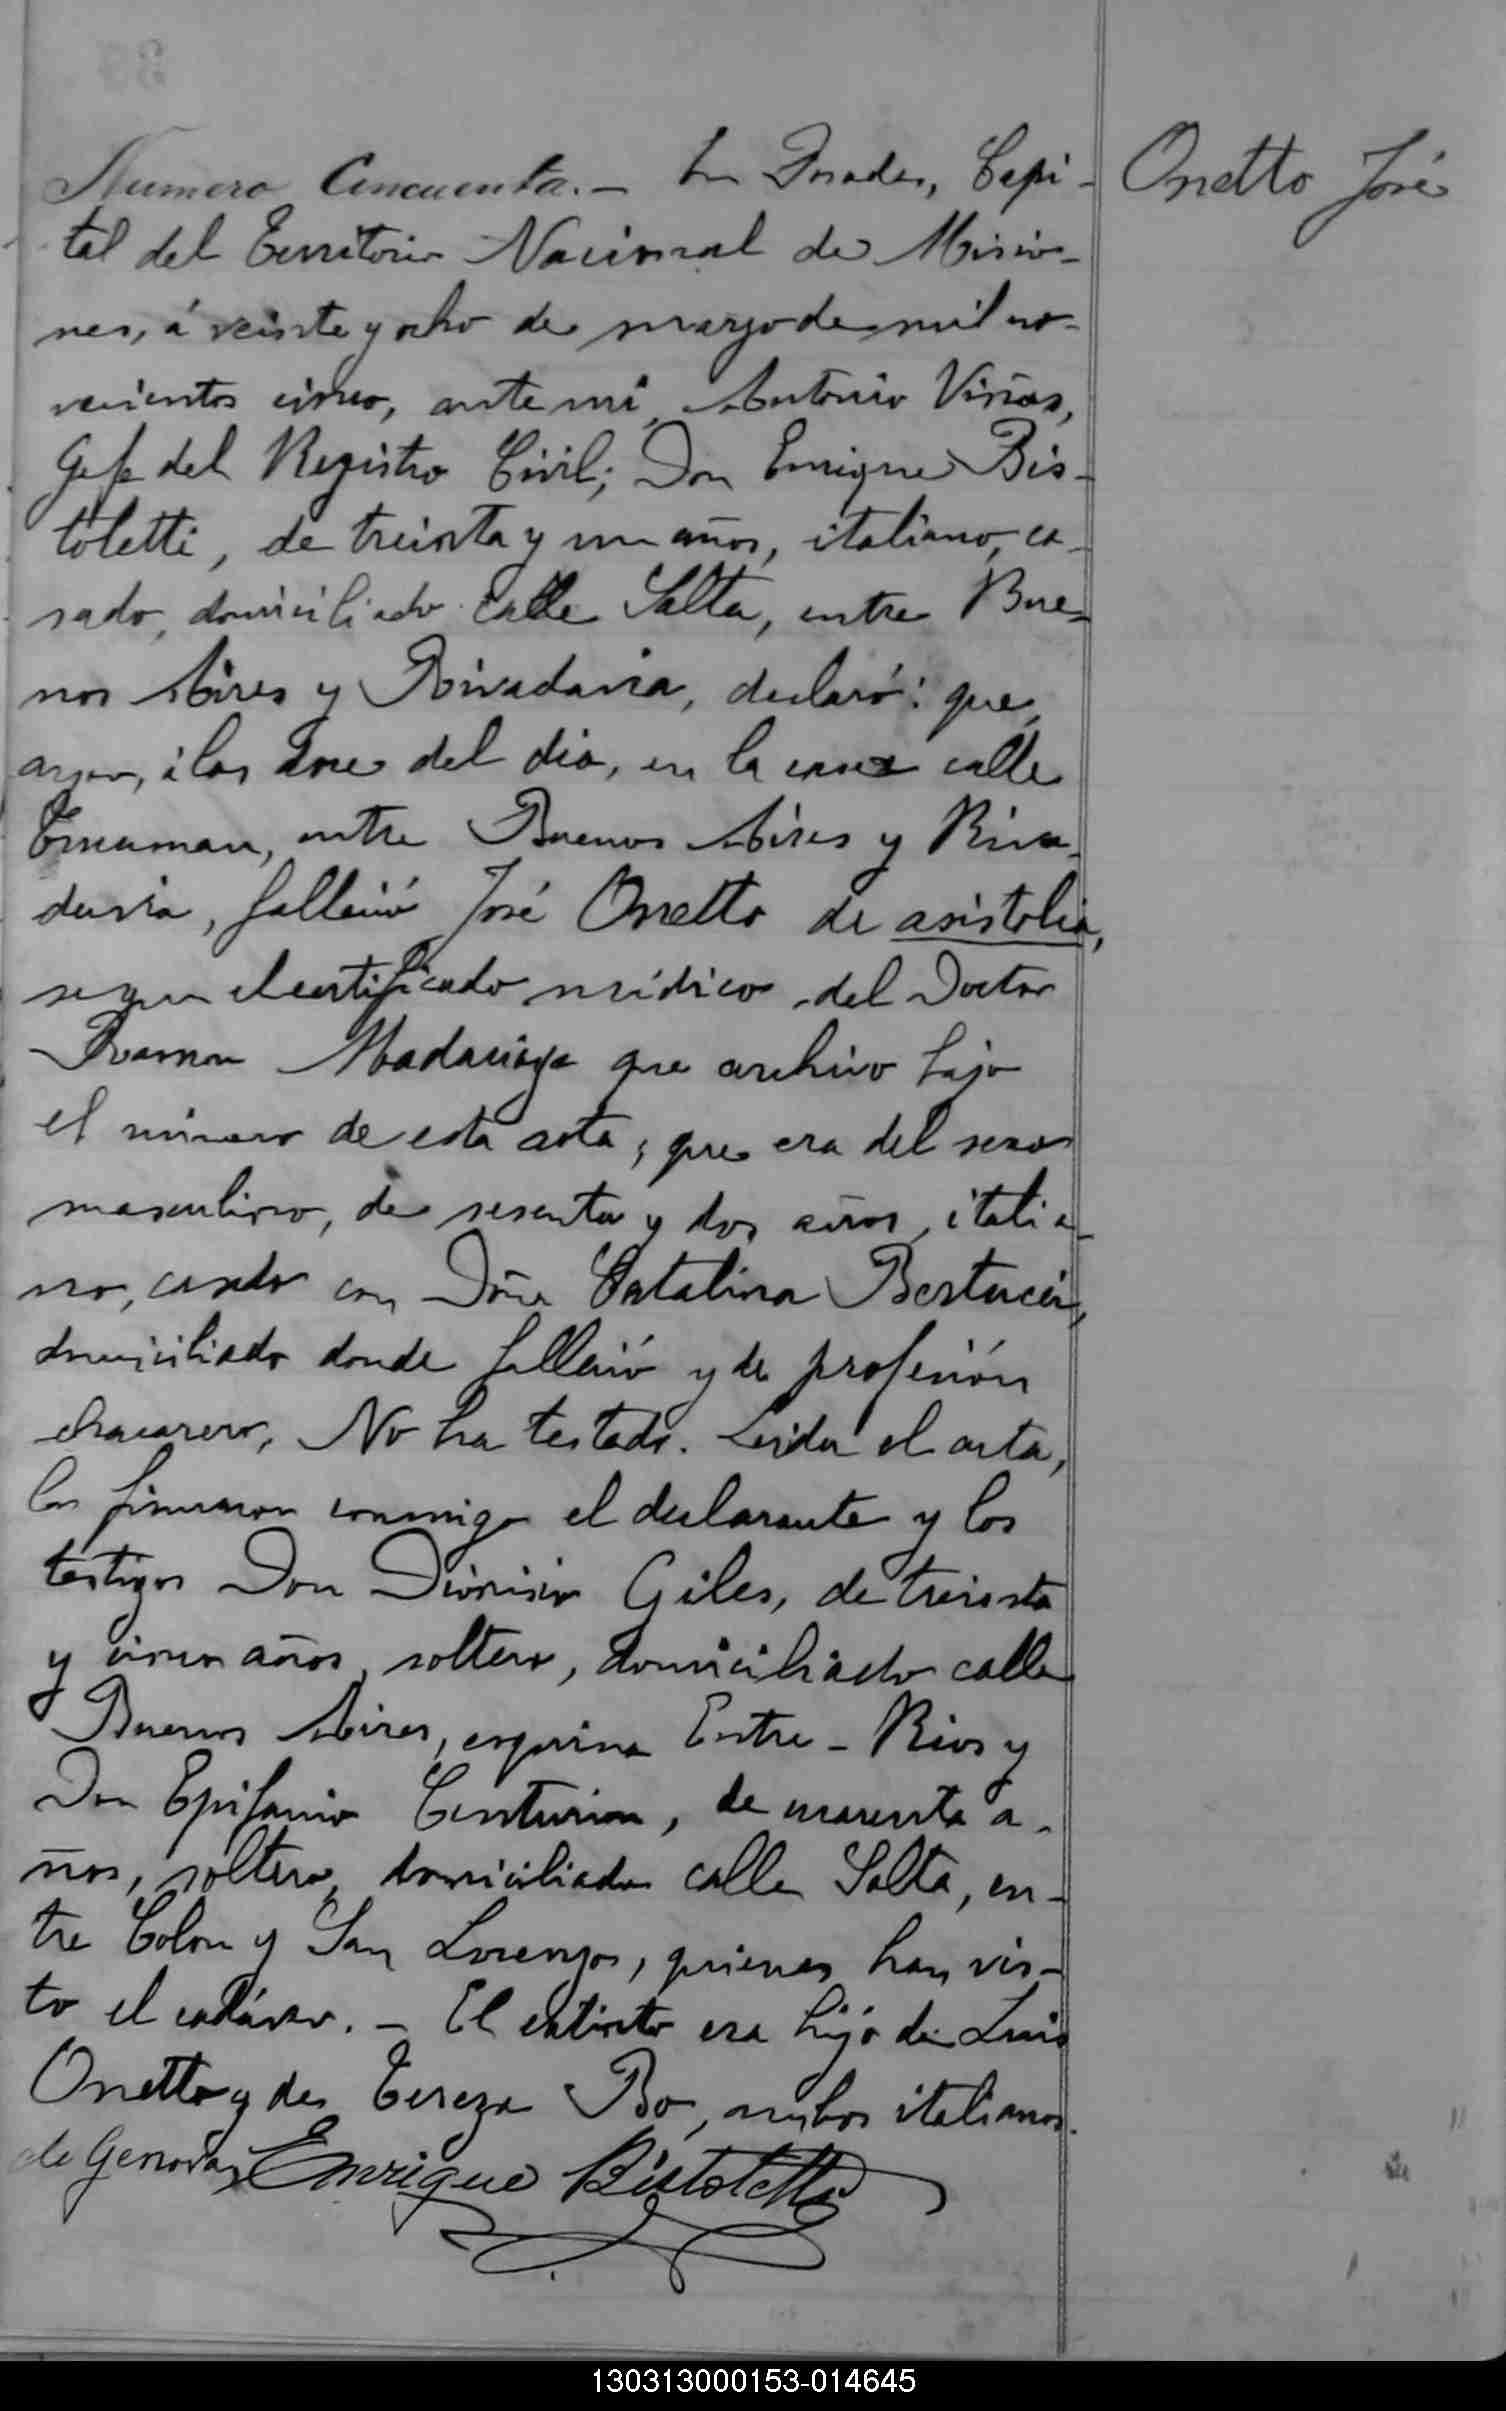 Onetto José
Numero Cincuenta. - En Posadas, Capi-
tal del Territorio Nacional de Misio-
nes, á veinte y ocho de marzo de mil no-
vecientos cinco, ante mi, Antonio Viñas,
Gefe del Registro Civil; Don Enrique Bis-
toletti, de treinta y un años, italiano, ca-
sado, domiciliado calle Salta, entre Bue-
nos Aires y Rivadavia, declaró: que,
ayer, á las doce del dia, en la casa calle
Tucuman, entre Buenos Aires y Riva-
davia, falleció José Onetto de asistolia,
segun el certificado médico del Doctor
Ramon Madariaga que archivo bajo
el número de esta acta; que era del sexo
masculino, de sesenta y dos años, italia-
no, casado con Doña Catalina Bertucci,
domiciliado donde falleció y de profesión
chacarero, No ha testado. Leida el acta,
la firmaron conmigo el declarante y los
testigos Don Dionisio Giles, de treinta
y cinco años, soltero, domiciliado calle
Buenos Aires, esquina Entre-Rios y
Don Epifanio Centurion, de cuarenta a-
ños, soltero, domiciliado calle Salta, en-
tre Colon y San Lorenzo, quienes han vis-
to el cadáver. - El extinto era hijo de Luis
Onetto y de Tereza Bo, ambos italianos.
de Genova, Enrique Bistoletti
130313000153-014645